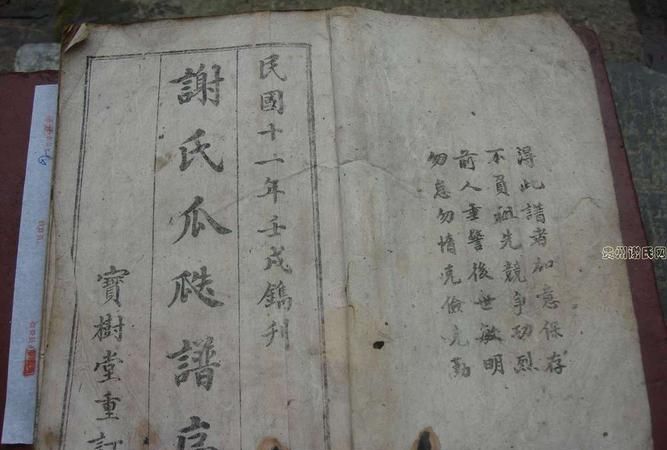 得此譜者加意保存
不負祖先競争功烈
前人垂警後世敏明
勿怠勿惰克儉克勤
民國十一年壬戌鐫刊
謝氏瓜瓞譜序
寶樹堂重訂
贵州谢氏网